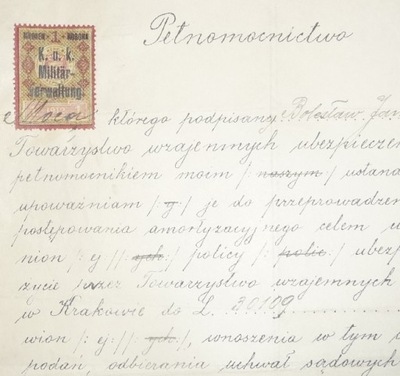 Pełnomocnictwo
KRONEN 1 KRONEN
K. u. k.
Militär-
verwaltung.
z Mocą którego podpisany Bolesław Jan
Towarzystwo wzajemnych ubezpieczeń
pełnomocnikiem moim /: naszym :/ ustana
upoważniam /: y :/ je do przeprowadzen
postępowania amortyzacyjnego celem u
nion /: ej :/ /: ych :/ policy /: polic :/ ubezp
życie przez Towarzystwo wzajemnych
w Krakowie do L. 30109
wion /: ej :/ /: ych :/, wnoszenia w tym
podań, odbierania uchwał sądowych